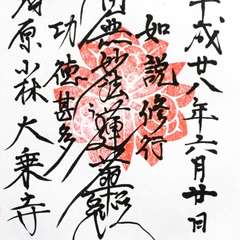 平成廿八年六月廿日
如説修行
南無妙法蓮華経
功徳甚多
原小林大乗寺